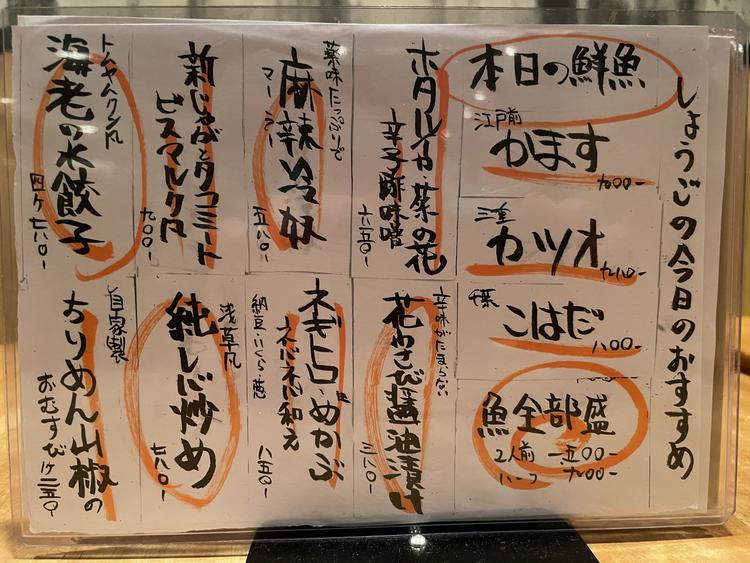 しょうごの今日のおすすめ
本日の鮮魚
江戸前
かます
九〇〇-
三重
カツオ
九八〇-
千葉
こはだ
八〇〇-
魚全部盛
2人前 一五〇〇-
ハーフ 九〇〇-
ホタルイカ・菜の花
辛子酢味噌
六五〇-
薬味たっぷりで
麻辣冷奴
マーラー
五八〇-
新じゃがとタコミート
ビスマルク風
九〇〇-
トムヤムクン風
海老の水餃子
四ヶ七八〇-
辛味がたまらない
花わさび醤油漬け
三八〇-
ネギトロ・めかぶ
ネバネバ和え
納豆・いくら 葱
八五〇-
浅草風
純レバ炒め
七八〇-
自家製
ちりめん山椒の
おむすび1ヶ二五〇-